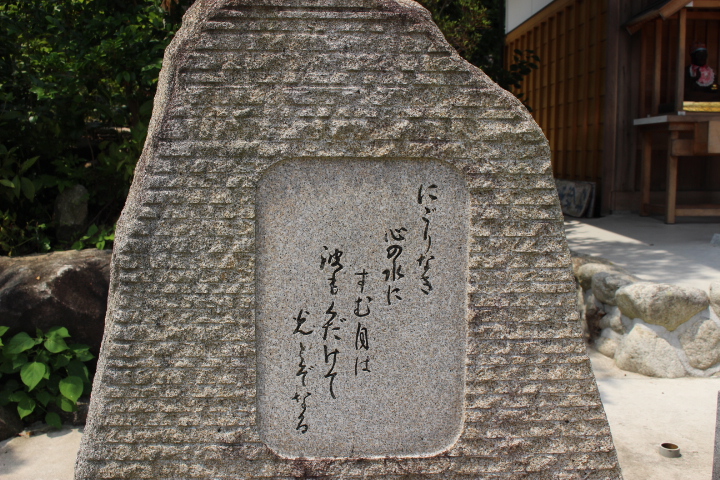 にごりなき
心の水に
すむ月は
波もくだけて
光とぞなる